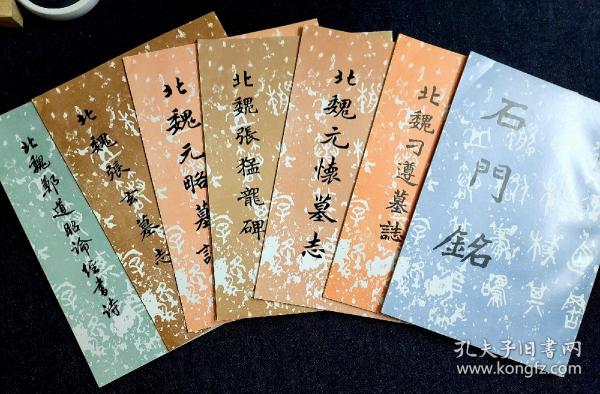 北魏鄭道昭論經書诗
北魏張玄墓志
北魏元略墓誌
北魏張猛龍碑
北魏元懷墓志
北魏刁遵墓誌
石門銘
孔夫子旧书网
www.kongfz.com